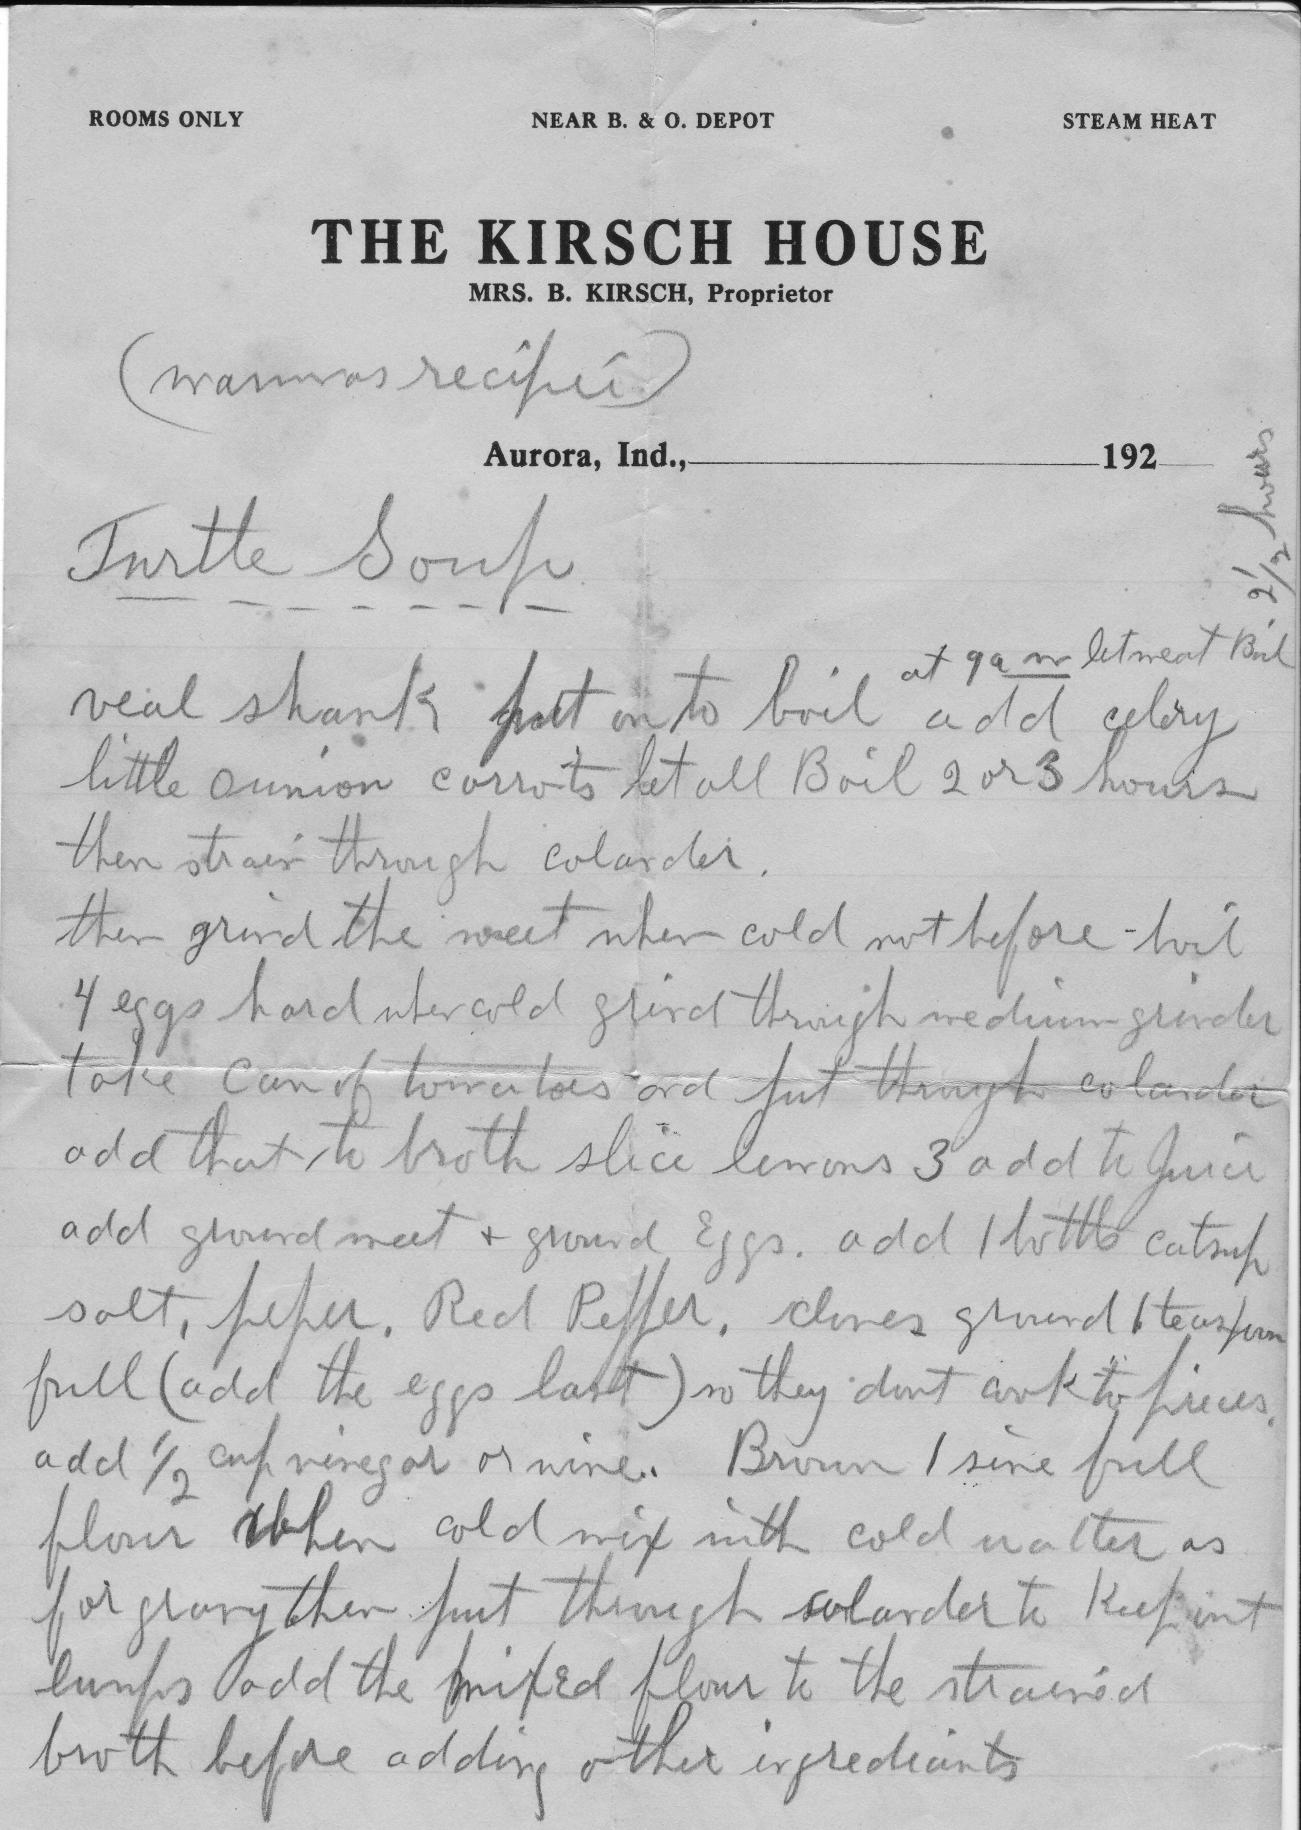 ROOMS ONLY NEAR B. & O. DEPOT STEAM HEAT
THE KIRSCH HOUSE
MRS. B. KIRSCH, Proprietor
(mammas recipei)
Aurora, Ind., 192
Turtle Soup
at 9 a m let meat Boil 2 1/2 hours
veal shank put on to boil add celery
little ounion carrots let all Boil 2 or 3 hours
then strain through colander.
then grind the meet when cold not before - boil
4 eggs hard when cold grind through medium grinder
take can of tomatoes and put through colander
add that to broth slice lemons 3 add to Juice
add ground meet + ground Eggs. add 1 bottle catsup
salt, peper, Red Pepper, cloves ground 1 teaspoon
full (add the eggs last) so they dont cook to pieces.
add 1/2 cup vinegar or wine. Brown 1 sive full
flour When cold mix with cold watter as
for gravy then put through colander to Keep out
lumps add the mixed flour to the strained
broth before adding other ingrediants